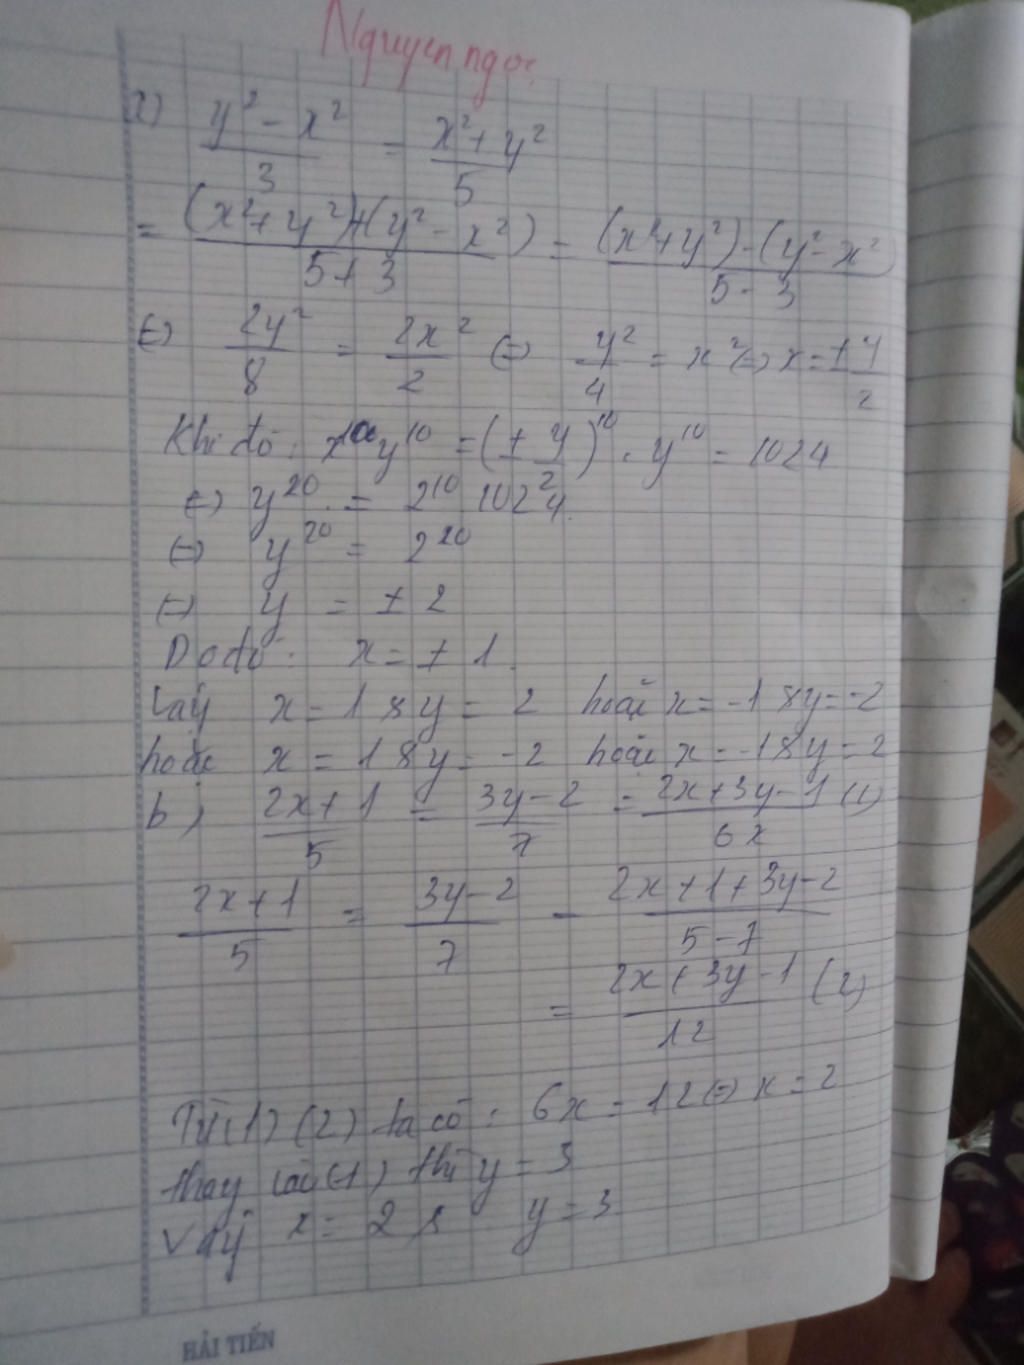 Nguyen ngoc
a) (y² - x²)/3 = (x² + y²)/5
= ((x² + y²) + (y² - x²))/(5 + 3) = ((x² + y²) - (y² - x²))/(5 - 3)
(=) 2y²/8 = 2x²/2 (=) y²/4 = x² (=) x = ± y/2
Khi đó : x¹⁰ y¹⁰ = (± y/2)¹⁰ . y¹⁰ = 1024
(=) y²⁰ = 2¹⁰ 1024
(=) y²⁰ = 2²⁰
(=) y = ± 2
Do đó : x = ± 1.
Vậy x = 1 & y = 2 hoặc x = -1 & y = -2
hoặc x = 1 & y = -2 hoặc x = -1 & y = 2
b) (2x + 1)/5 = (3y - 2)/7 = (2x + 3y - 1)/6x (1)
(2x + 1)/5 = (3y - 2)/7 = (2x + 1 + 3y - 2)/(5 - 7)
= (2x + 3y - 1)/12 (2)
Từ (1) (2) ta có : 6x = 12 (=) x = 2
thay vào (1) thì y = 3
Vậy x = 2 & y = 3
HẢI TIẾN